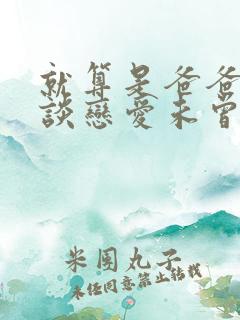 就算是爸爸
談戀愛未曾
米團丸子
未經同意禁止轉載